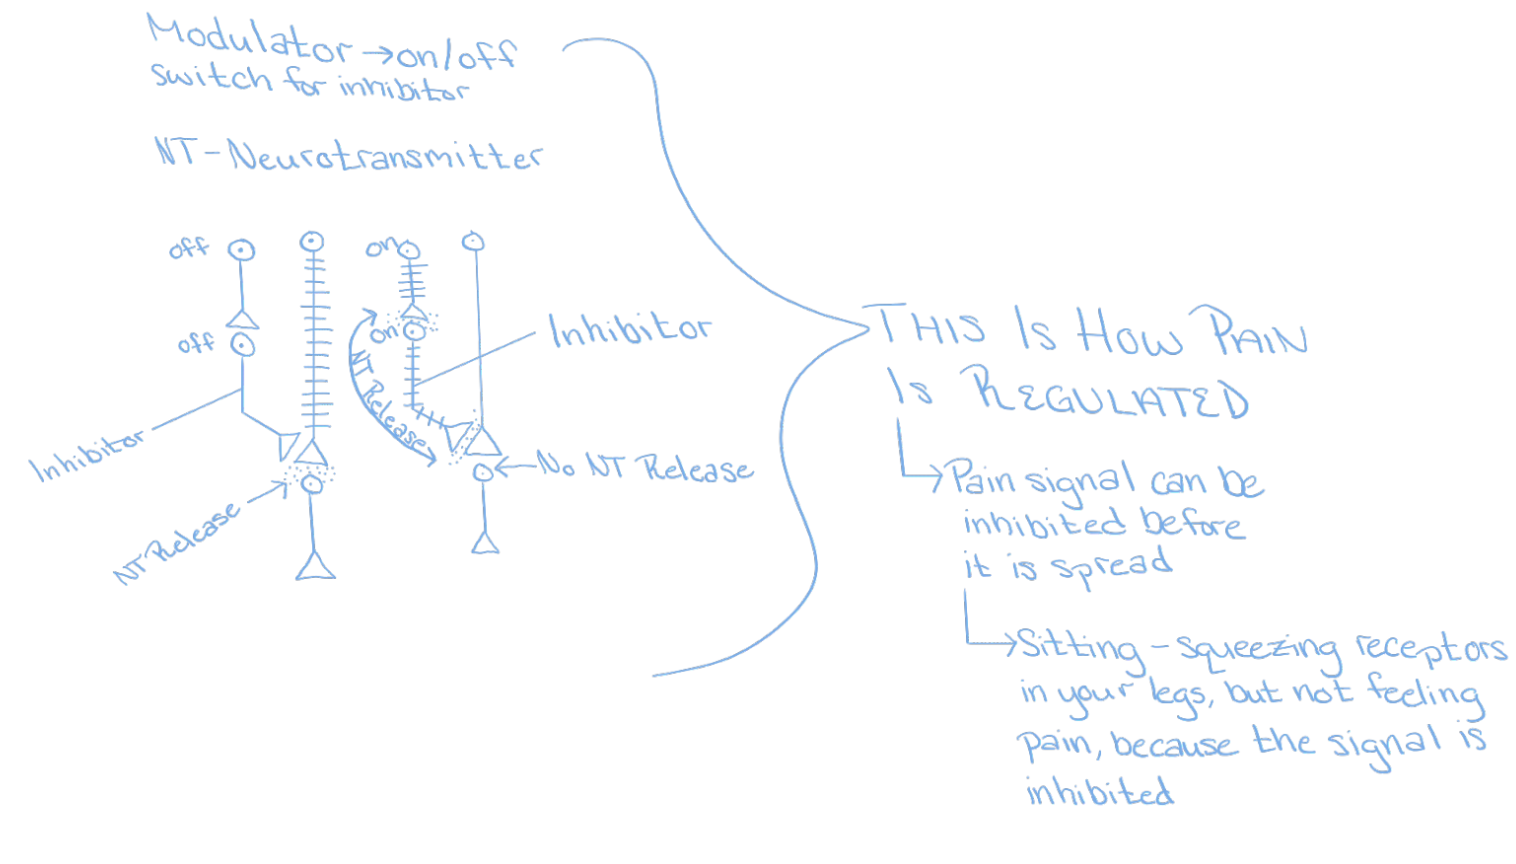 Modulator → on/off
switch for inhibitor
NT - Neurotransmitter
off
on
off
on
Inhibitor
NT Release
Inhibitor
NT Release
No NT Release
THIS IS HOW PAIN
IS REGULATED
→ Pain signal can be
inhibited before
it is spread
→ Sitting - squeezing receptors
in your legs, but not feeling
pain, because the signal is
inhibited